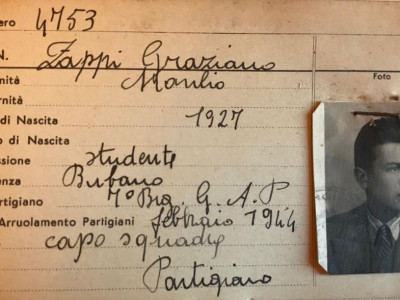 ero 4753
N. Zappi Graziano
nità Manlio
rnità
di Nascita 1927
o di Nascita
ssione studente
enza Bubano
artigiano 7º Brg. G. A. P
Arruolamento Partigiani febbraio 1944
capo squadra
Partigiano
Foto